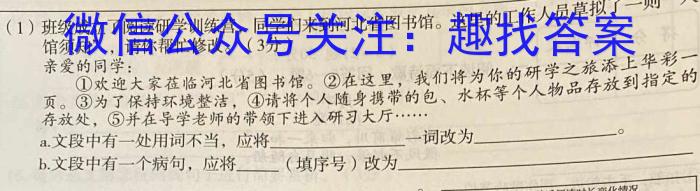 (1) 班级 阅读研学训练营，同学们来到河北省图书馆。这里的工作人员草拟了一则"入
馆须 请你帮忙修改。(3分)
微信公众号关注：趣找答案
亲爱的同学：
①欢迎大家莅临河北省图书馆。②在这里，我们将为你的研学之旅添上华彩一
页。③为了保持环境整洁，④请将个人随身携带的包、水杯等个人物品存放到指定的
存放处，⑤并在导学老师的带领下进入研习大厅……
a.文段中有一处用词不当，应将____一词改为____。
b.文段中有一个病句，应将____（填序号）改为____